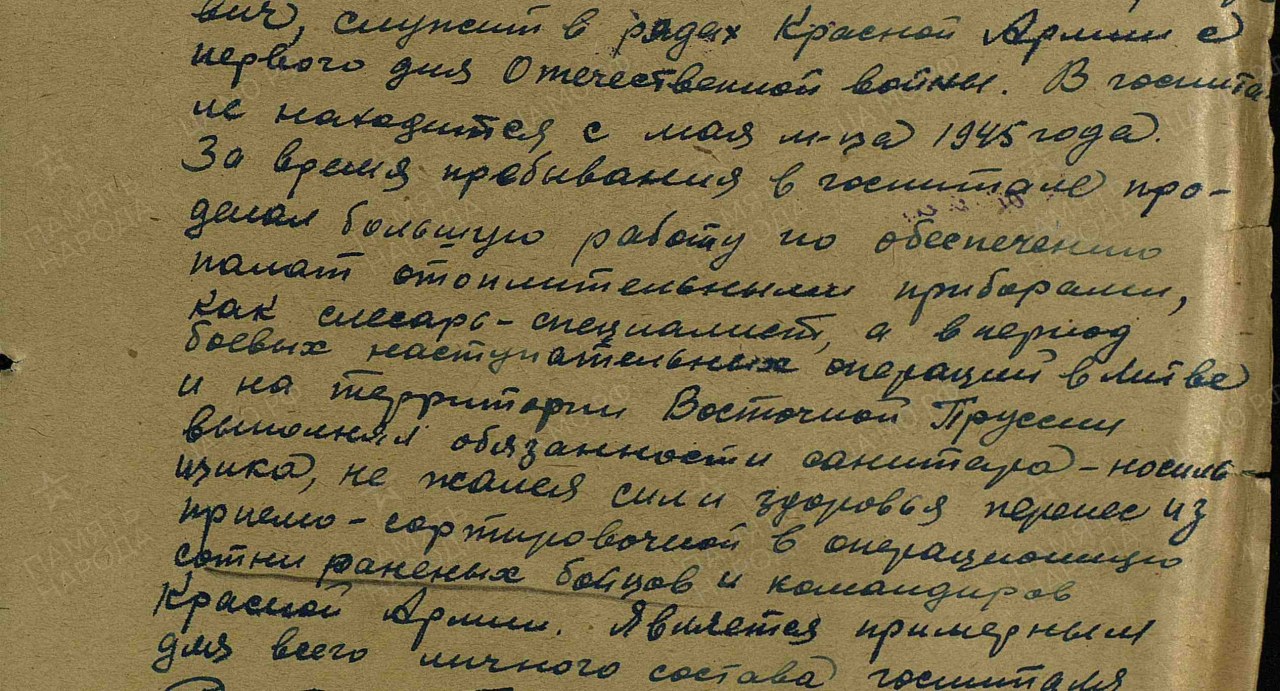 вич, служит в рядах Красной Армии с
первого дня Отечественной войны. В госпита-
ле находится с мая м-ца 1945 года.
За время пребывания в госпитале про-
делал большую работу по обеспечению
палат отопительными приборами,
как слесарь-специалист, а в период
боевых наступательных операций в Литве
и на территории Восточной Пруссии
выполнял обязанности санитара-носиль-
щика, не жалея сил и здоровья перенес из
приемо-сортировочной в операционную
сотни раненых бойцов и командиров
Красной Армии. Является примерным
для всего личного состава госпиталя
ПАМЯТЬ НАРОДА
ЦАМО РФ